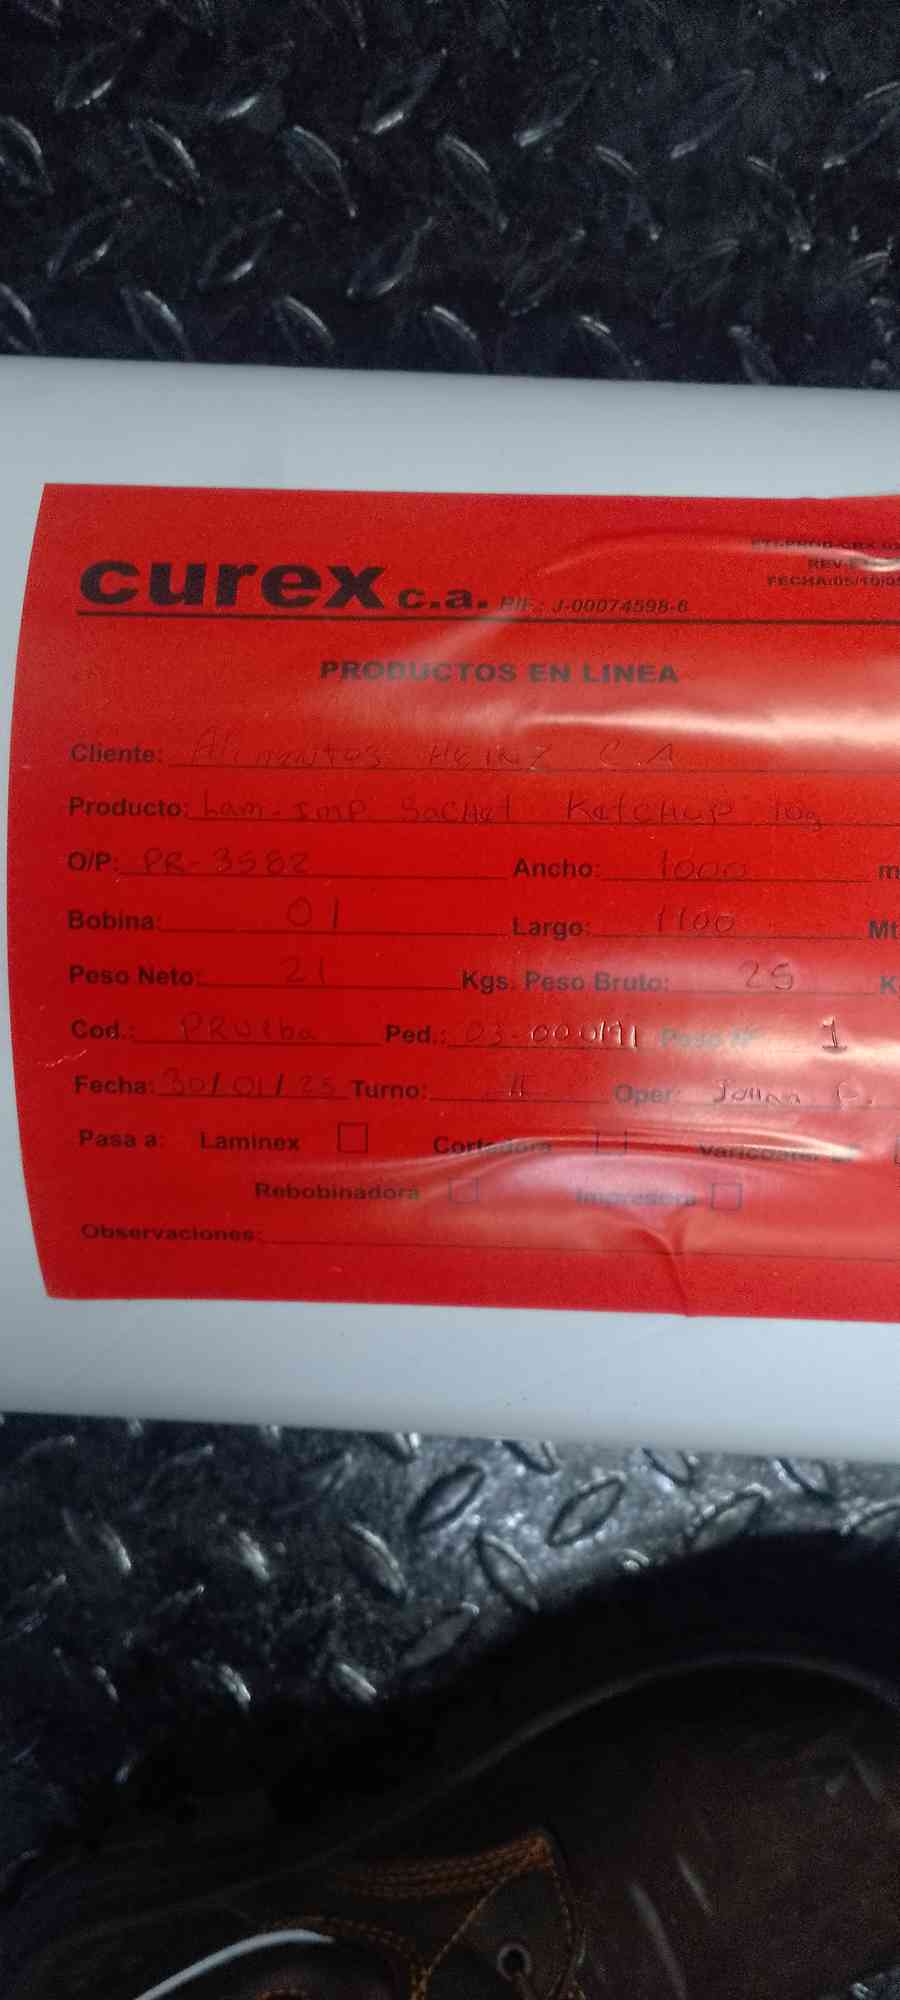 curex c.a. RIF.: J-00074598-6
FECHA:05/10/05
PRODUCTOS EN LINEA
Cliente: Alimentos HEINZ C A
Producto: Lam-Imp Sachet Ketchup 10g
O/P: PR-3582 Ancho: 1000 m
Bobina: 01 Largo: 1100 Mt
Peso Neto: 21 Kgs. Peso Bruto: 25 K
Cod.: PRueba Ped.: 03-000191 Paso Nº 1
Fecha: 30/01/25 Turno: II Oper:
Pasa a: Laminex Cortadora Varicoater
Rebobinadora Impresora
Observaciones: